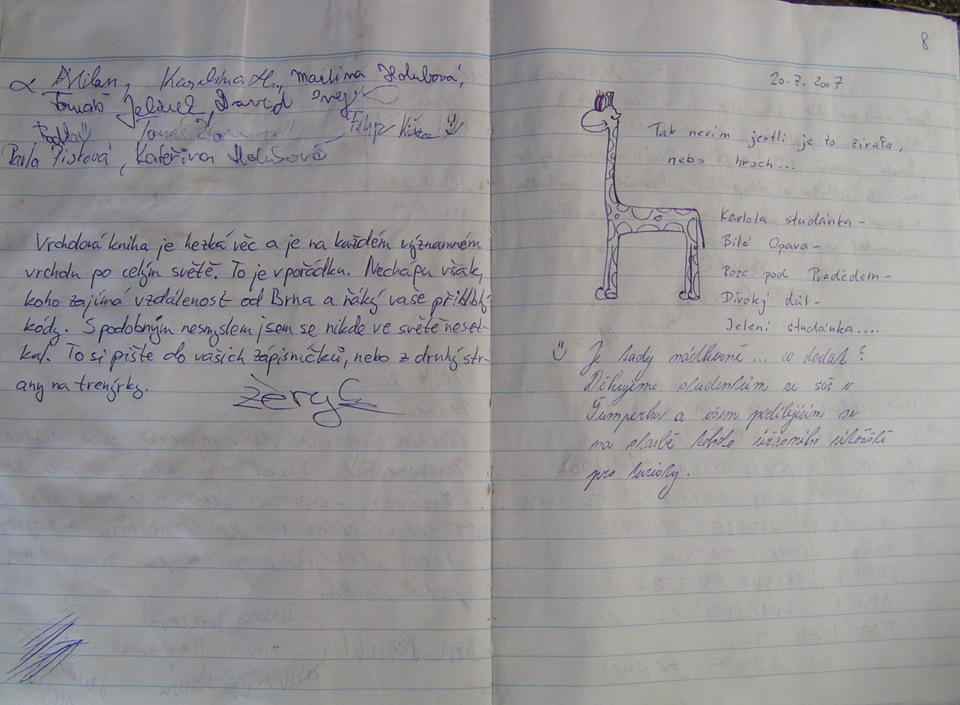 Milan, Karolína H., Martina Holubová,
Tomáš Jelínek, David
Radka Tomáš Filip
Pavla Písková, Kateřina Holubová
Vrcholová kniha je hezká věc a je na každém významném
vrcholu po celým světě. To je v pořádku. Nechápu však,
koho zajímá vzdálenost od Brna a ňáký vaše přihlblý
kódy. S podobným nesmyslem jsem se nikde ve světě neset-
kal. To si pište do vašich zápisníčků, nebo z druhý str-
any na trenýrky.
8
20.7.2007
Tak nevim jestli je to žirafa,
nebo hroch...
Karlola studánka -
Bílá Opava -
Rozc. pod Pradědem -
Divoký důl -
Jelení studánka....
Je tady nádherně... co dodat?
Děkujeme studentům ze SOŠ v
Šumperku a všem podílejícím se
na stavbě tohoto úžasného útočiště
pro turisty.